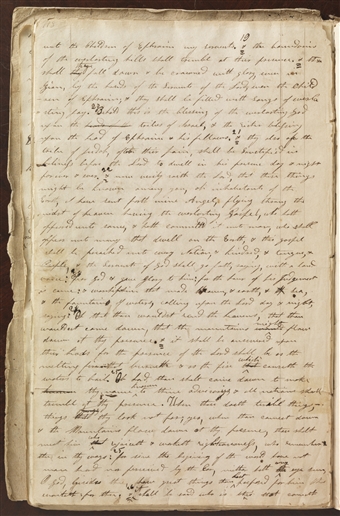 unto the Children of Ephraim my servants & the boundaries
of the everlasting hills shall tremble at their presence & then
shall they fall down & be crowned with glory even in
Zion, by the hands of the servants of the Lord, even the Child
ren of Ephraim, & they shall be filled with songs of everla
sting joy. Behold this is the blessing of the everlasting God
upon the tribes of Israel, & the richer blessing
upon the head of Ephraim & his fellows, & they also of the
tribe of Judah, after their pain, shall be sanctified in
holiness before the Lord to dwell in his presence day & night
forever & ever & now verily saith the Lord, that these things
might be known among you, oh inhabitants of the
Earth, I have sent forth mine Angel, flying through the
midst of heaven having the everlasting Gospel, who hath
appeared unto some, & hath committed it unto man, who shall
appear unto many that dwell on the Earth, & this gospel
shall be preached unto every Nation, & kindred, & tongue, &
People, & the servants of God shall go forth, saying, with a loud
voice, fear God & give glory to him, for the hour of his judgment
is come, & worship him that made heaven, & earth, & sea,
& the fountains of waters, calling upon the Lord day & night,
saying O that thou wouldest rend the heavens, that thou
wouldest come down, that the mountains might flow
down at thy presence, & it shall be answered upon
their heads for the presence of the Lord shall be as the
melting fire that burneth & as the fire which causeth the
waters to boil. O Lord thou shalt come down to make
thy name known to thine Adversaries & all nations shall
tremble at thy presence. When thou doeth terrible things,
things they look not for, yea, when thou comest down
& the Mountains flow down at thy presence, thou shalt
meet him who rejoiceth & worketh righteousness, who remember
thee in thy ways, for since the beginning of the world have not
men heard nor perceived by the Ear, neither hath any eye seen,
O God, besides thee, how great things thou hast prepared for him who
waiteth for thee & it shall be said who is this that cometh